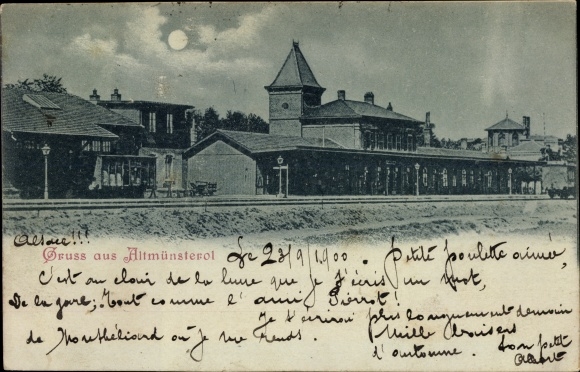 Alsace!!!
Gruss aus Altmünsterol
Le 23/9/1900. Petite poulette aimée,
C'est au clair de la lune que je t'écris un mot,
De la gare; Tout comme l'ami Pierrot!
Je t'écrirai plus longuement demain
de Montbéliard où je me rends. Mille baisers
d'automne. Ton petit
Albert